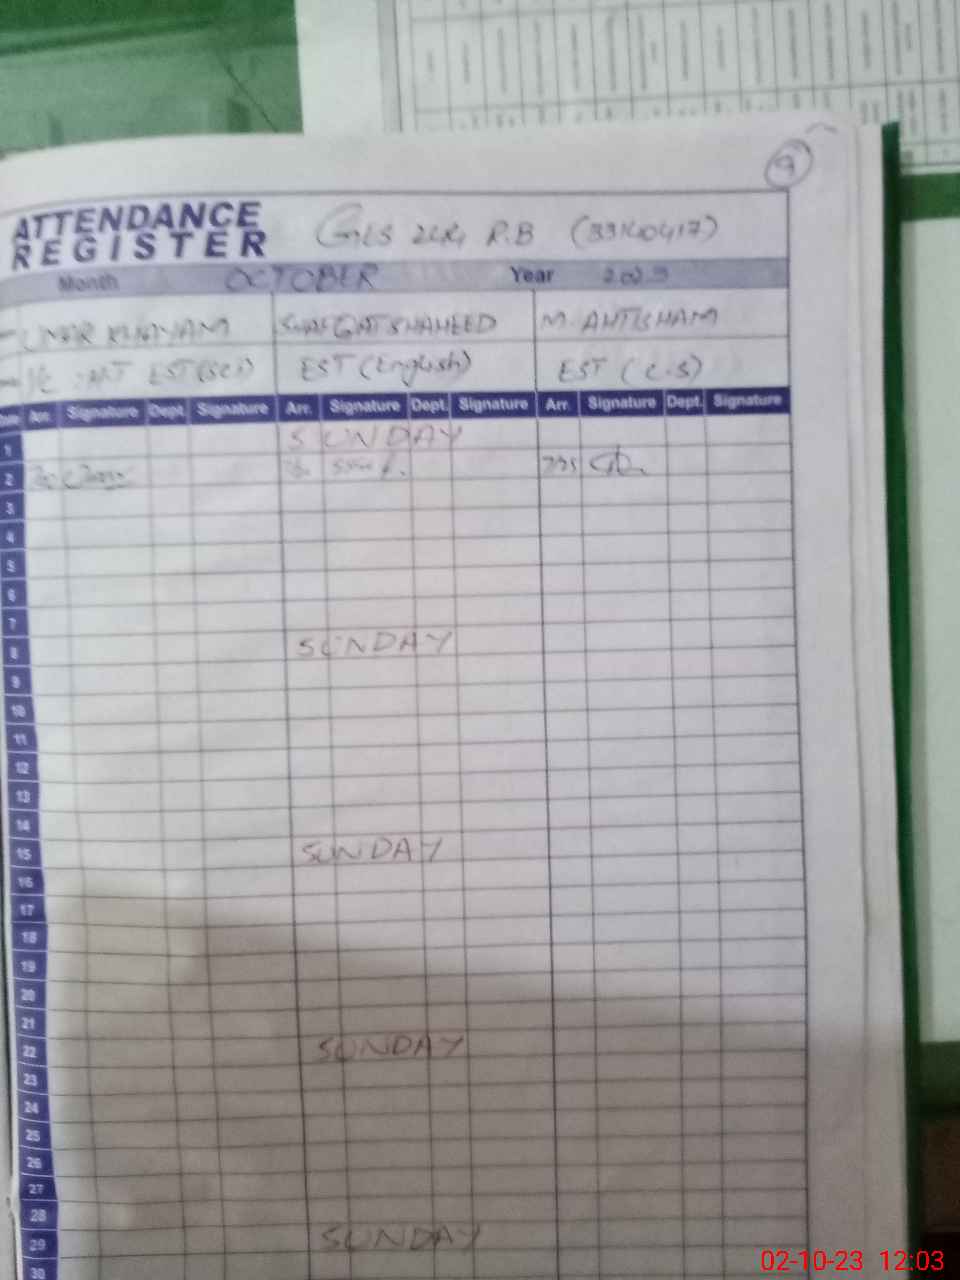 9
ATTENDANCE
REGISTER
R.B (33140417)
Month OCTOBER Year 2023
UMAR KHAYAM SHAFQAT SHAHEED M. AHTISHAM
EST (Sci) EST (English) EST (C.S)
Date Arr. Signature Dept. Signature Arr. Signature Dept. Signature Arr. Signature Dept. Signature
1 SUNDAY
2
3
4
5
6
7
8 SUNDAY
9
10
11
12
13
14
15 SUNDAY
16
17
18
19
20
21
22 SUNDAY
23
24
25
26
27
28
29 SUNDAY
30
02-10-23 12:03